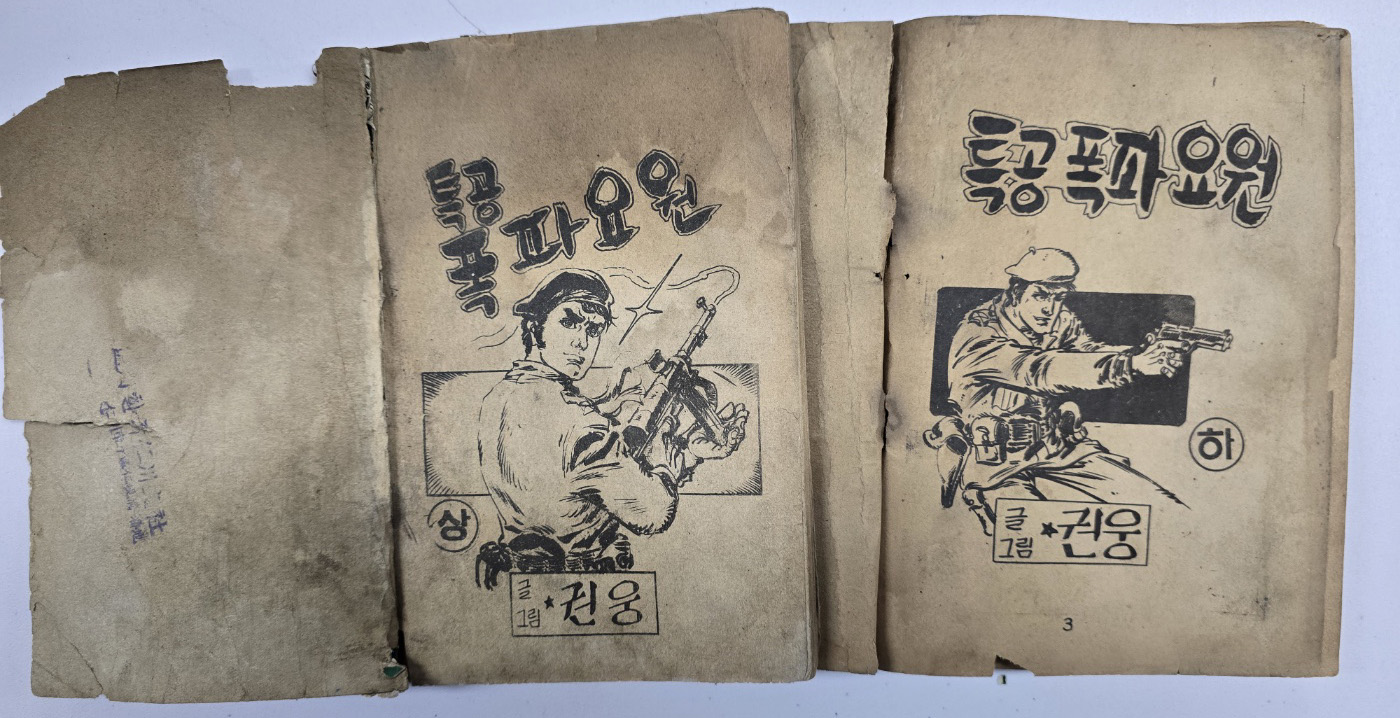 특공
폭파요원
상
글
그림 ★ 권웅
특공 폭파요원
하
글
그림 ★ 권웅
3